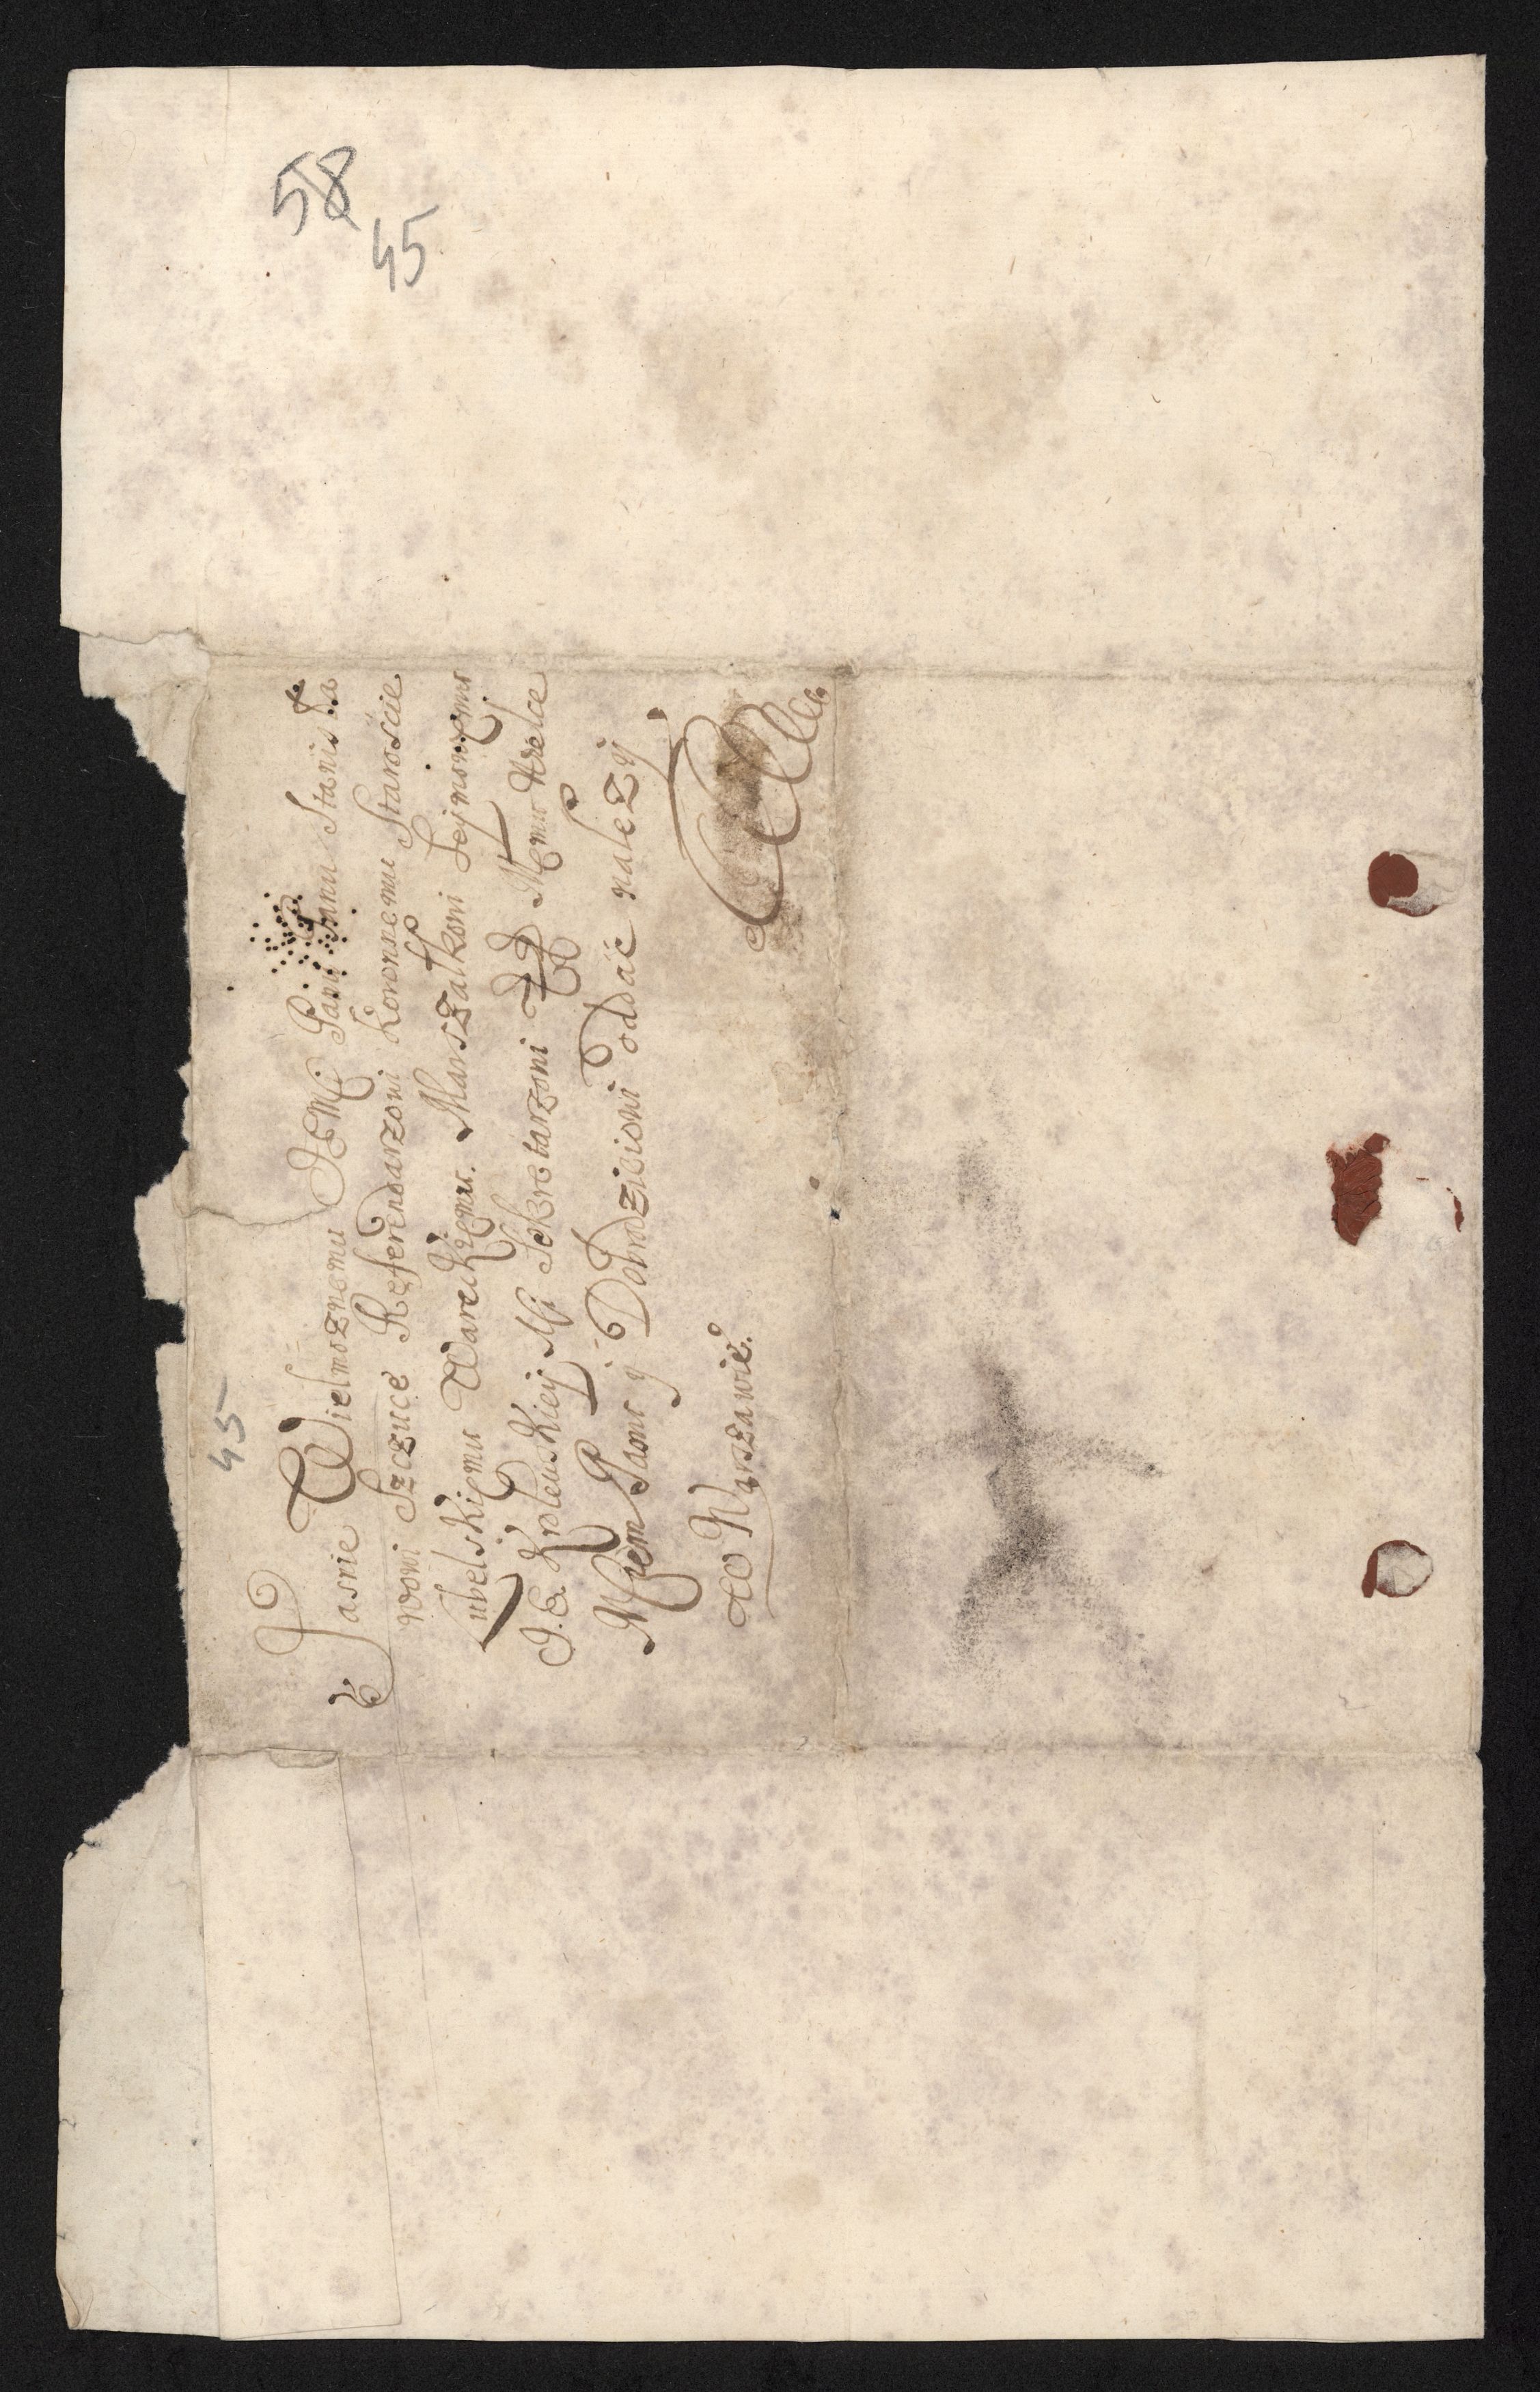 58
45
45
Jasnie Wielmoznemu JEMći Panu Panu Stanisła
wowi Szczuce Referendarzowi Koronnemu Staroscie
Lubelskiemu Wareckiemu. Marszałkowi Seymowemu
J. K. Krolewskieij Mći Sekretarzowi Memu Wielce
Mćiem Panu y Dobrodzieiowi oddać nalezy
w Warszawie.